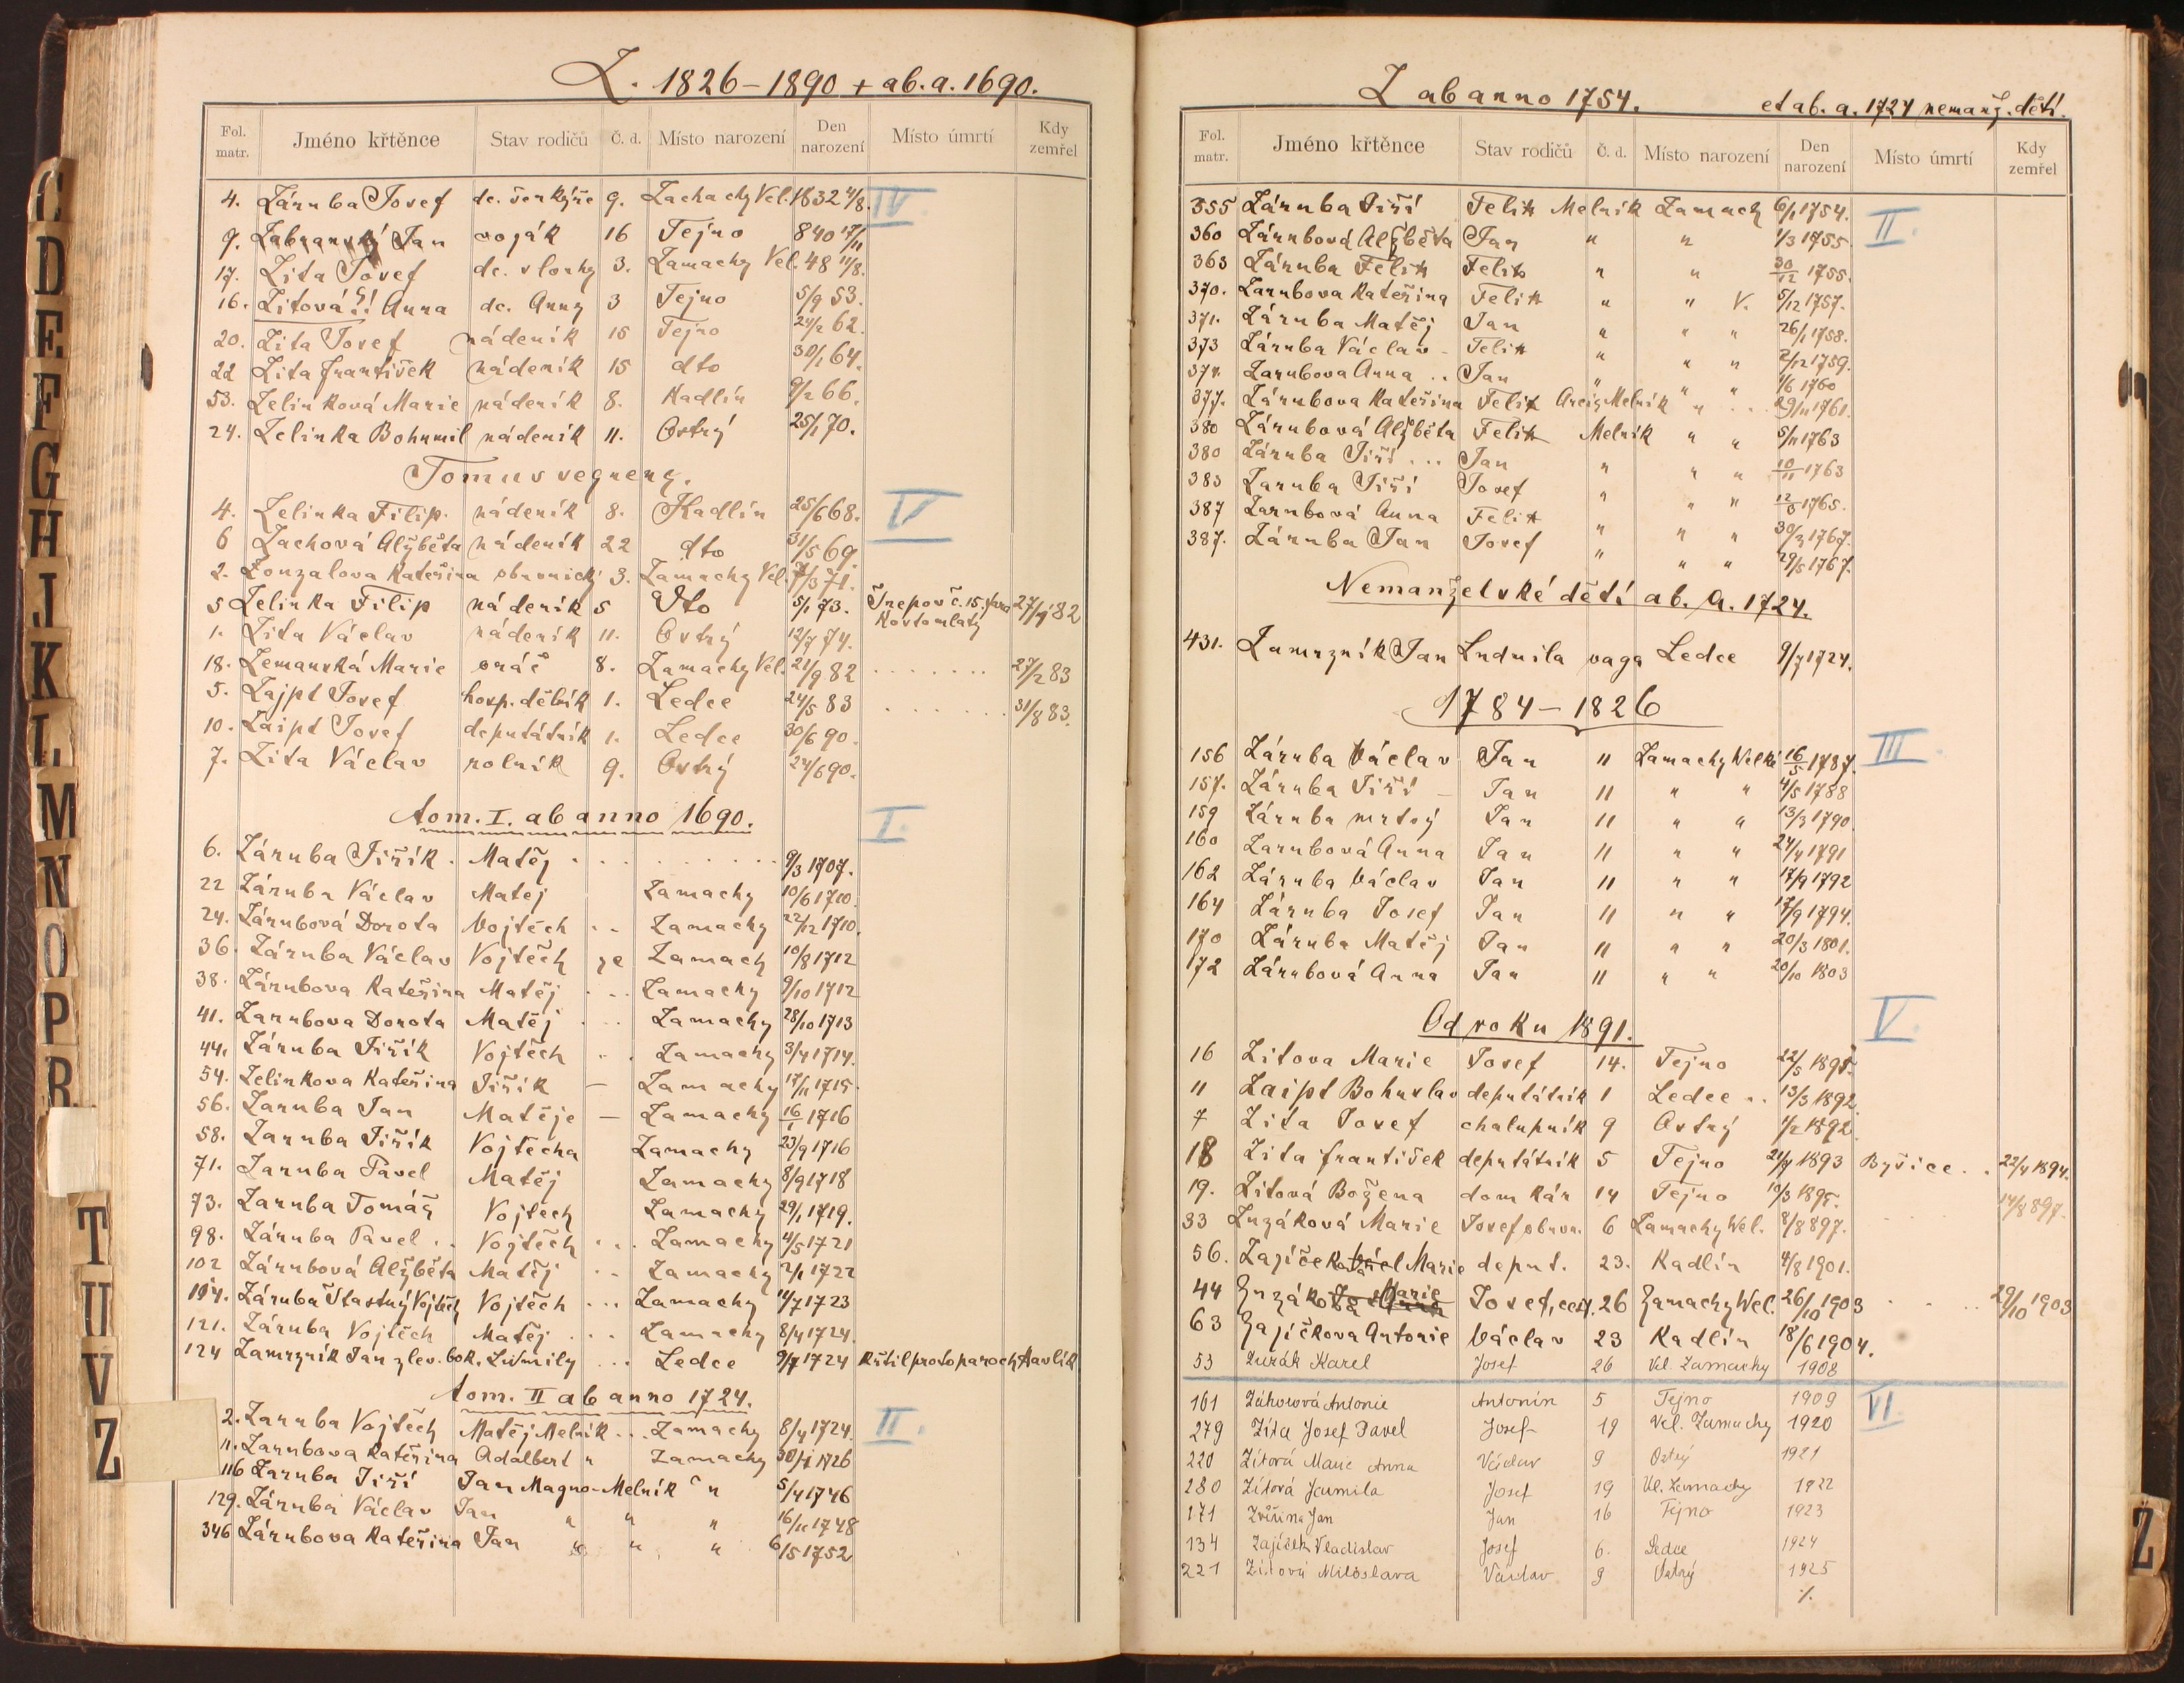 Z. 1826–1890 + ab. a. 1690.
Fol. matr. Jméno křtěnce Stav rodičů Č. d. Místo narození Den narození Místo úmrtí Kdy zemřel
4. Záruba Josef dc. šenkýře 9. Zachachy Vel. 1832 4/8. IV
9. Zabranský Jan voják 16 Tejno 840 17/11
17. Zita Josef dc. sloužy 3. Zamachy Vel. 48 11/8.
16. Zitová Anna dc. Anny 3 Tejno 5/9 53.
20. Zita Josef nádeník 15 Tejno 24/2 62.
22 Zita František nádeník 15 dto 30/1 64.
53. Zelinková Marie nádeník 8. Kadlín 9/2 66.
24. Zelinka Bohumil nádeník 11. Ostrý 25/1 70.
Tomus sequens.
4. Zelinka Filip. nádeník 8. Kadlín 25/6 68. IV
6 Zachová Alžběta nádeník 22 dto 31/5 69.
2. Zouzalova Kateřina obuvnický 3. Zamachy Vel. 7/3 71.
5 Zelinka Filip nádeník 5 Dto 5/1 73. Kostomlaty 27/4 82
1. Zita Václav nádeník 11. Ostrý 12/7 74.
18. Zemanská Marie oráč 8. Zamachy Vel. 21/9 82 . . . . . . . 27/2 83
5. Zajpt Josef hosp. dělník 1. Ledce 24/5 83 . . . . . . . 31/8 83.
10. Zaipt Josef deputátník 1. Ledce 30/6 90.
7. Zita Václav rolník 9. Ostrý 24/6 90.
Tom. I. ab anno 1690. I.
6. Záruba Jiřík . Matěj . . . . . . . . . 9/3 1707.
22 Záruba Václav Matej Zamachy 10/6 1710.
24. Zárubová Dorota Vojtěch . . Zamachy 22/12 1710.
36. Záruba Václav Vojtěch ze Zamach 10/8 1712
38. Zárubova Kateřina Matěj . . . Zamachy 9/10 1712
41. Zarubova Dorota Matěj . . . Zamachy 28/10 1713
44. Záruba Jiřík Vojtěch . . . Zamachy 3/4 1714.
54. Zelinkova Kateřina Jiřík — Zamachy 17/11 1715.
56. Zaruba Jan Matěje — Zamachy 16/1 1716
58. Zaruba Jiřík Vojtěcha Zamachy 23/9 1716
71. Zaruba Pavel Matěj Zamachy 8/9 1718
73. Zaruba Tomáš Vojtěch Zamachy 29/1 1719.
98. Záruba Pavel . . Vojtěch . . . Zamachy 4/5 1721
102 Zárubová Alžběta Matěj . . Zamachy 2/1 1722
104. Záruba Štastný Vojtěch Vojtěch . . . Zamachy 14/7 1723
121. Záruba Vojtěch Matěj . . . Zamachy 8/4 1724.
124 Zamrzník Jan z lev. bok. Ludmily . . . Ledce 9/7 1724 Křtil protoparoch Havlík
Tom. II ab anno 1724.
2. Zaruba Vojtěch Matěj Melník . . . Zamachy 8/4 1724. II.
11. Zarubova Kateřina Adalbert " Zamachy 30/4 1726
116 Zaruba Jiří Jan Magno-Melnik " 5/4 1746
129. Záruba Václav Jan " " " 16/11 1748
346 Zárubova Kateřina Jan " " " 6/5 1752
Z ab anno 1754. et ab. a. 1724 nemanž. dětí.
Fol. matr. Jméno křtěnce Stav rodičů Č. d. Místo narození Den narození Místo úmrtí Kdy zemřel
355 Záruba Jiří Felix Melnik Zamach 6/1 1754. II.
360 Zárubová Alžběta Jan " " 1/3 1755
363 Záruba Felix Felix " " 30/12 1755.
370. Zarubova Kateřina Felix " " V. 5/12 1757.
371. Záruba Matěj Jan " " " 26/1 1758.
373 Záruba Václav - Felix " " " 2/12 1759.
374. Zarubova Anna . . Jan " " " 1/6 1760
377. Zárubova Kateřina Felix Melnik " . . . 29/11 1761.
380 Zárubová Alžběta Felix Melnik " " 5/11 1763
380 Záruba Jiří . . . Jan " " " 10/11 1763
383 Zaruba Jiří Josef " " " 12/8 1765.
387 Zarubová Anna Felix " " " 30/3 1767.
387. Záruba Jan Josef " " " 29/5 1767.
Nemanželské dětí ab. A. 1724.
431. Zamrzník Jan Ludmila vaga Ledce 9/7 1724.
1784–1826
156 Záruba Václav Jan 11 Zamachy Welké 16/5 1787. III.
157. Záruba Jiří — Jan 11 " " 4/5 1788
159 Záruba mrtvý Jan 11 " " 13/3 1790.
160 Zarubová Anna Jan 11 " " 24/4 1791
162 Záruba Václav Jan 11 " " 17/9 1792
164 Záruba Josef Jan 11 " " 17/9 1794.
170 Záruba Matěj Jan 11 " " 20/3 1801.
172 Zárubová Anna Jan 11 " " 20/10 1803
Od roku 1891. V.
16 Zitova Marie Josef 14. Tejno 22/5 1895.
11 Zaipt Bohuslav deputátník 1 Ledce . . 13/3 1892.
7 Zita Josef chalupník 9 Ostrý 1/2 1892.
18 Zita František deputátník 5 Tejno 24/4 1893 Byšice . . 22/4 1894.
19. Zitová Božena domkář 14 Tejno 10/3 1895.
33 Zuzáková Marie Josef obuv. 6 Zamachy Wel. 8/8 897. 14/8 897.
56. Zajíčková Marie deput. 23. Kadlín 4/8 1901.
44 Zuzáko Marie Josef, 26 Zamachy Wel. 26/10 1903 . . . . 29/10 1903
63 Zajíčkova Antonie Václav 23 Kadlín 18/6 1904.
53 Zuzák Karel Josef 26 Vel. Zamachy 1908
161 Záhorová Antonie Antonín 5 Tejno 1909 VI.
279 Zíta Josef Pavel Josef 19 Vel. Zamachy 1920
220 Zítová Marie Anna Václav 9 Ostrý 1921
280 Zítová Jarmila Josef 19 Vel. Zamachy 1922
171 Zvěřina Jan Jan 16 Tejno 1923
134 Zajíček Vladislav Josef 6. Ledce 1924
221 Zítová Miloslava Václav 9 Ostrý 1925
./.
C
D
E
F
G
H
J
K
L
M
N
O
P
R
T
U
V
Z
Z